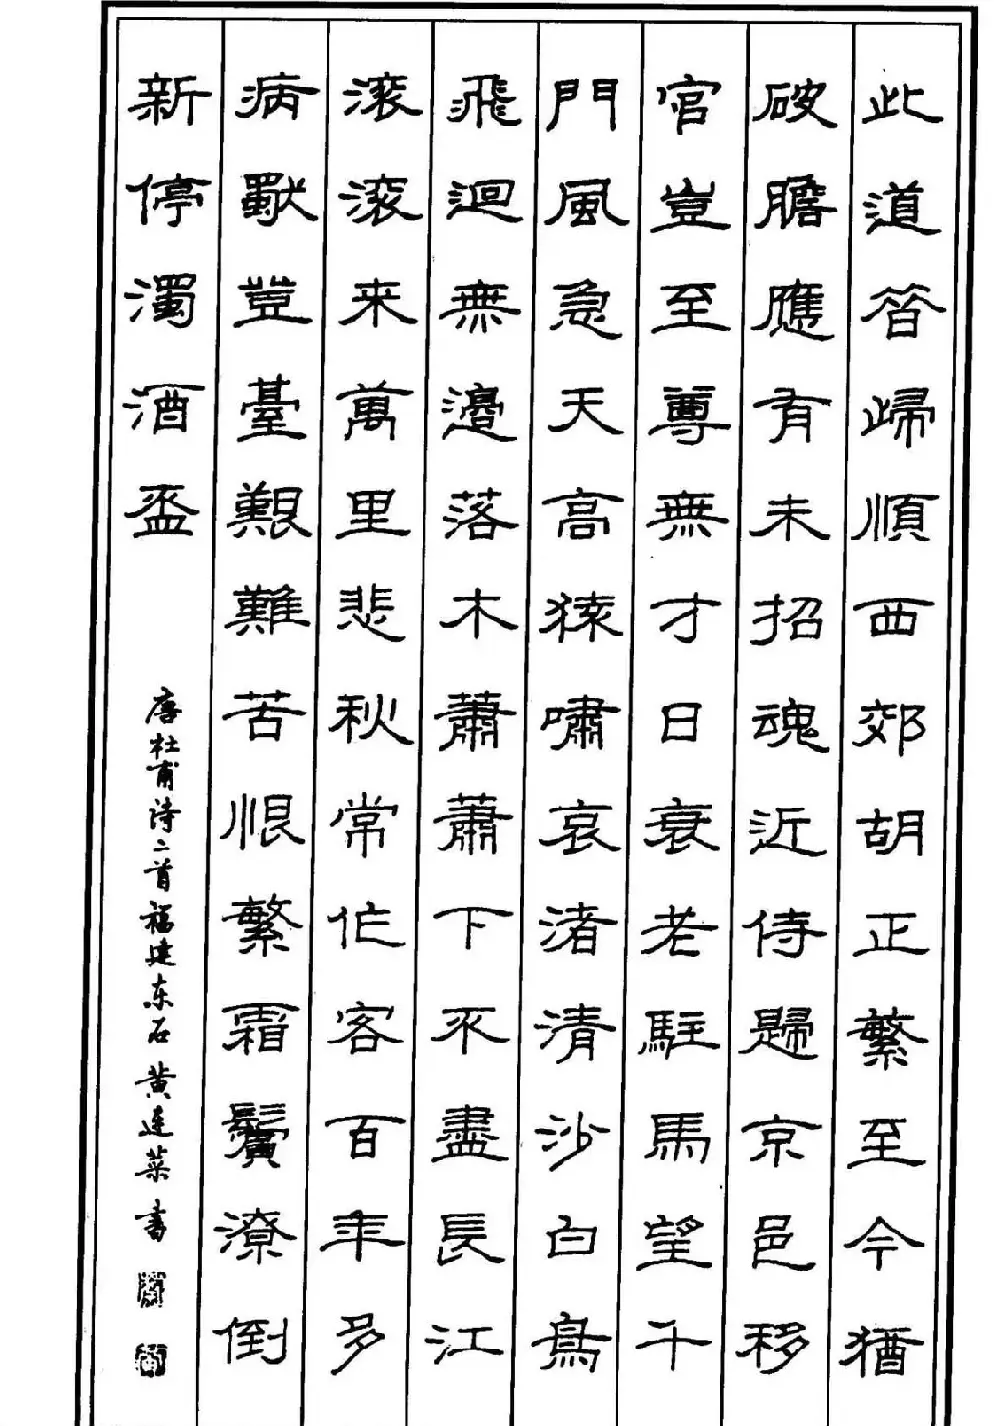 此道昔歸順西郊胡正繁至今猶
破膽應有未招魂近侍歸京邑移
官豈至尊無才日衰老駐馬望千
門風急天高猿嘯哀渚清沙白鳥
飛迴無邊落木蕭蕭下不盡長江
滚滚来萬里悲秋常作客百年多
病獨登臺艱難苦恨繁霜鬢潦倒
新停濁酒盃
唐杜甫诗二首福建东石黄连菜书